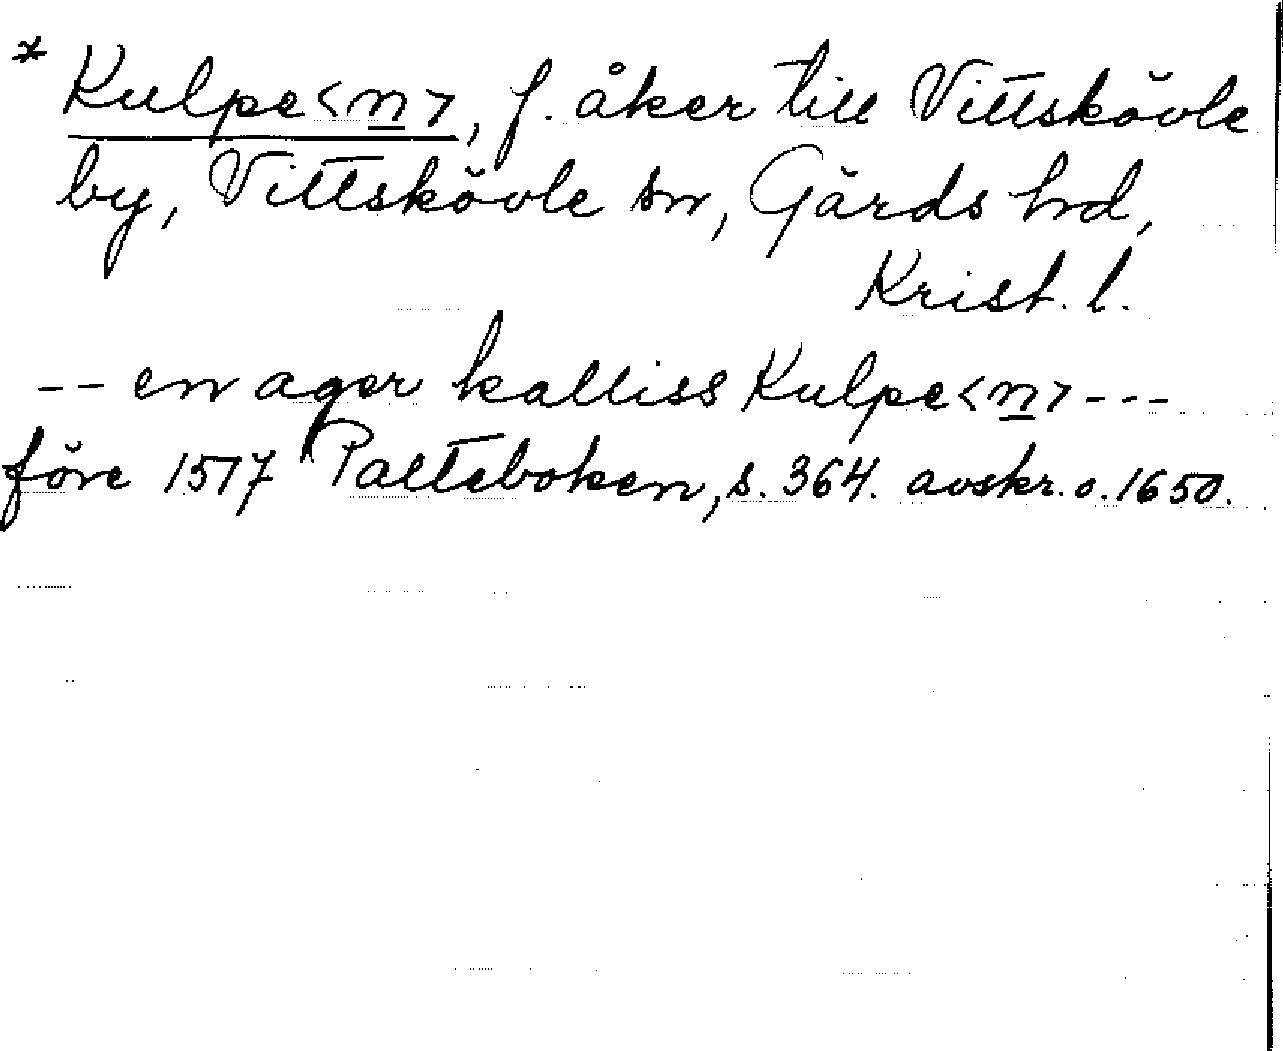 * Kulpe<n>, f. åker till Vittskövle
by, Vittskövle sn, Gärds hd,
Krist. l.
-- en ager kalliss Kulpe<n> ---
före 1517 Palteboken, s. 364. avskr. o. 1650.